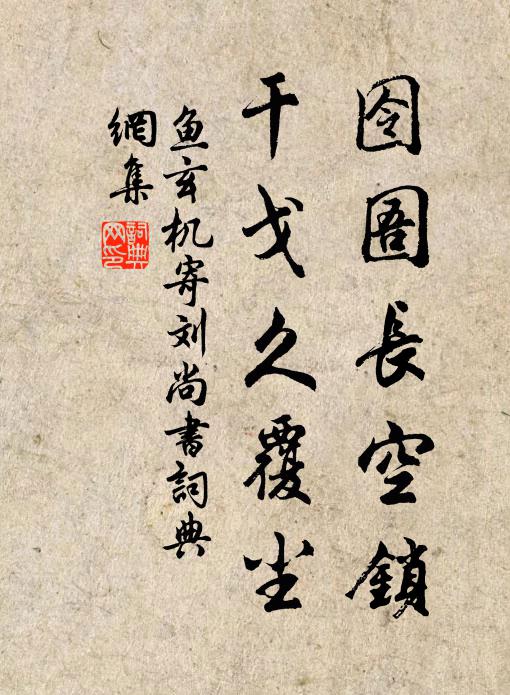 囹圄長空鎖
干戈久覆尘
鱼玄机寄刘尚書詞典
網集
詞典
网印